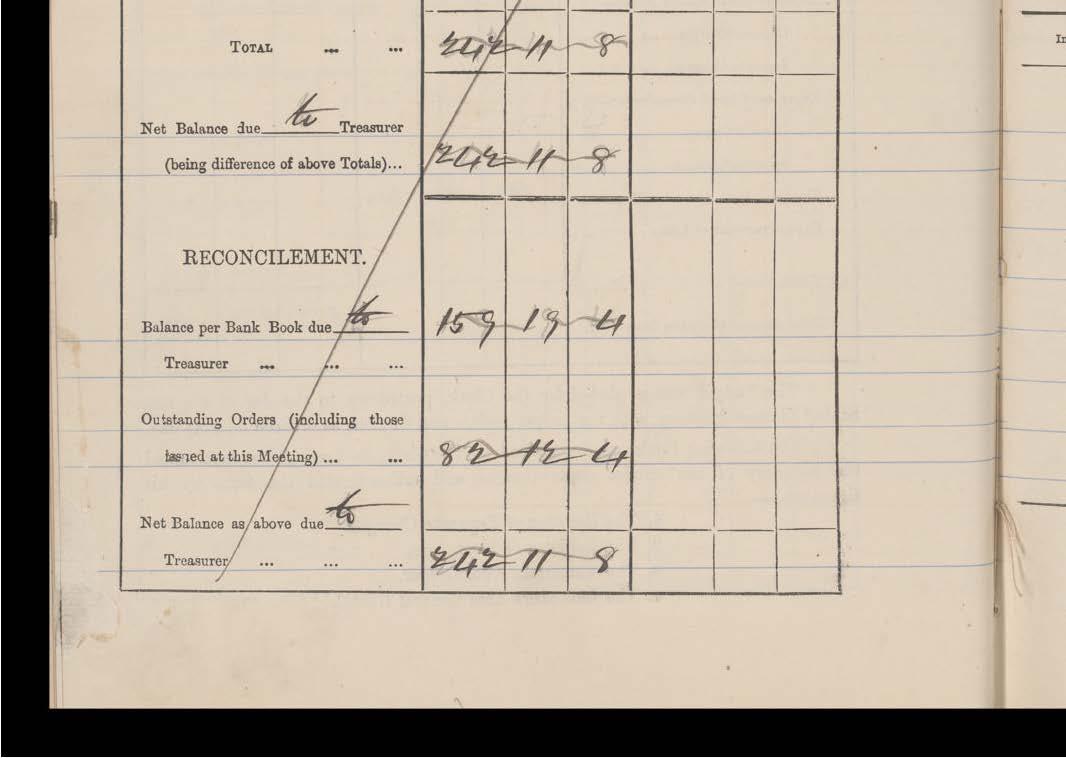 TOTAL ... ... 242 11 8
In
Net Balance due to Treasurer
(being difference of above Totals)... 242 11 8
RECONCILEMENT.
Balance per Bank Book due to 159 19 4
Treasurer ... ... ...
Outstanding Orders (including those
issued at this Meeting) ... ... 82 12 4
Net Balance as above due to
Treasurer ... ... ... 242 11 8